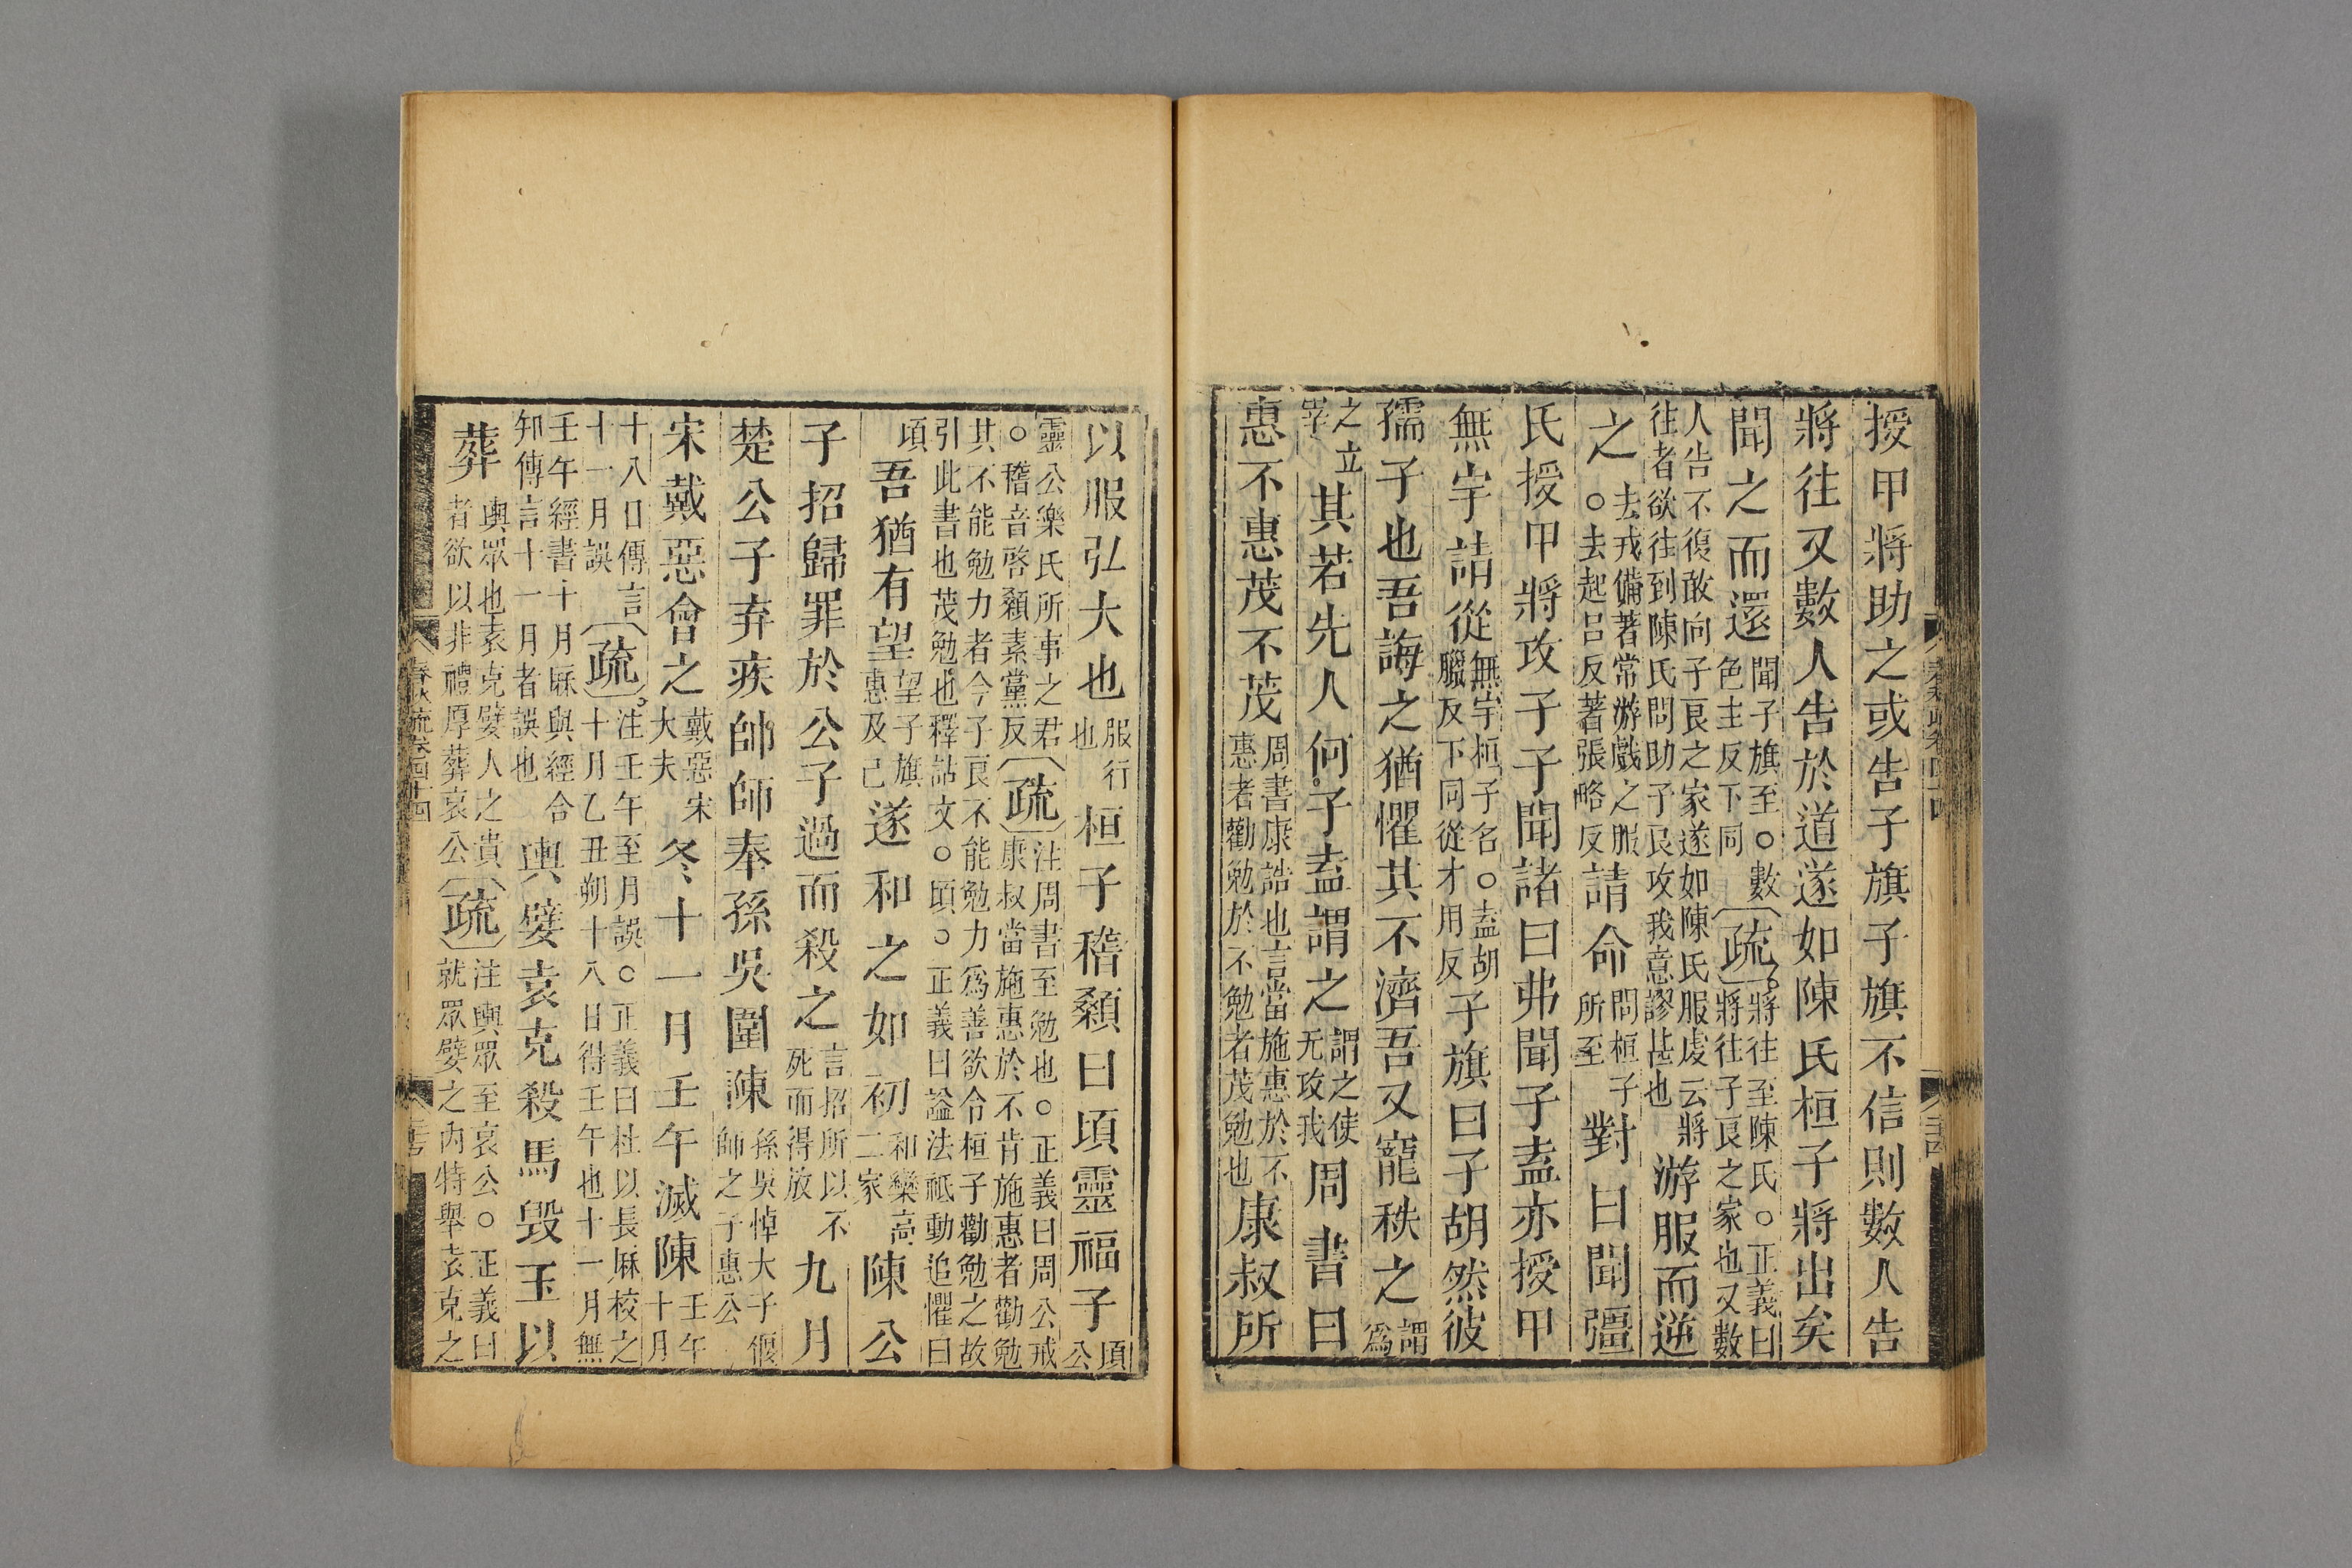 授甲將助之或告子旗子旗不信則數人告
將往又數人告於道遂如陳氏桓子將出矣
聞之而還聞子旗至○數色主反下同疏將往至陳氏○正義曰將往子良之家也又數
人告不復敢向子良之家遂如陳氏服虔云將往者欲往到陳氏問助子良攻我意謬甚也游服而逆
之去戎備著常游戲之服○去起呂反著張略反請命問桓子所至對曰聞彊
氏授甲將攻子子聞諸曰弗聞子盍亦授甲
無宇請從無宇桓子名○盍胡臘反下同從才用反子旗曰子胡然彼
孺子也吾誨之猶懼其不濟吾又寵秩之謂爲
之立宰其若先人何子盍謂之謂之使无攻我周書曰
惠不惠茂不茂周書康誥也言當施惠於不惠者勸勉於不勉者茂勉也康叔所
以服弘大也服行也桓子稽顙曰頃靈福子頃公
靈公欒氏所事之君○稽音啓顙素黨反疏注周書至勉也○正義曰周公戒康叔當施惠於不肯施惠者勸勉
其不能勉力者今子良不能勉力爲善欲令桓子勸勉之故引此書也茂勉也釋詁文○頃○正義曰謚法祗動追懼曰
頃吾猶有望望子旗惠及己遂和之如初和欒高二家陳公
子招歸罪於公子過而殺之言招所以不死而得放九月
楚公子弃疾帥師奉孫吳圍陳孫吳悼大子偃師之子惠公
宋戴惡會之戴惡宋大夫冬十一月壬午滅陳壬午十月
十八日傳言十一月誤疏注壬午至月誤○正義曰杜以長厤校之十月乙丑朔十八日得壬午也十一月無
壬午經書十月厤與經合知傳言十一月者誤也輿嬖袁克殺馬毀玉以
葬輿眾也袁克嬖人之貴者欲以非禮厚葬哀公疏注輿眾至哀公○正義曰就眾嬖之内特舉袁克之
春秋疏卷四十四